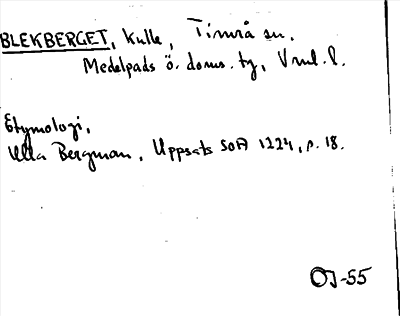 BLEKBERGET, kulle, Timrå sn.
Medelpads ö. doms. tg, Vnul. l.
Etymologi,
Ulla Bergman, Uppsats SOA 1224, p. 18.
OJ-55